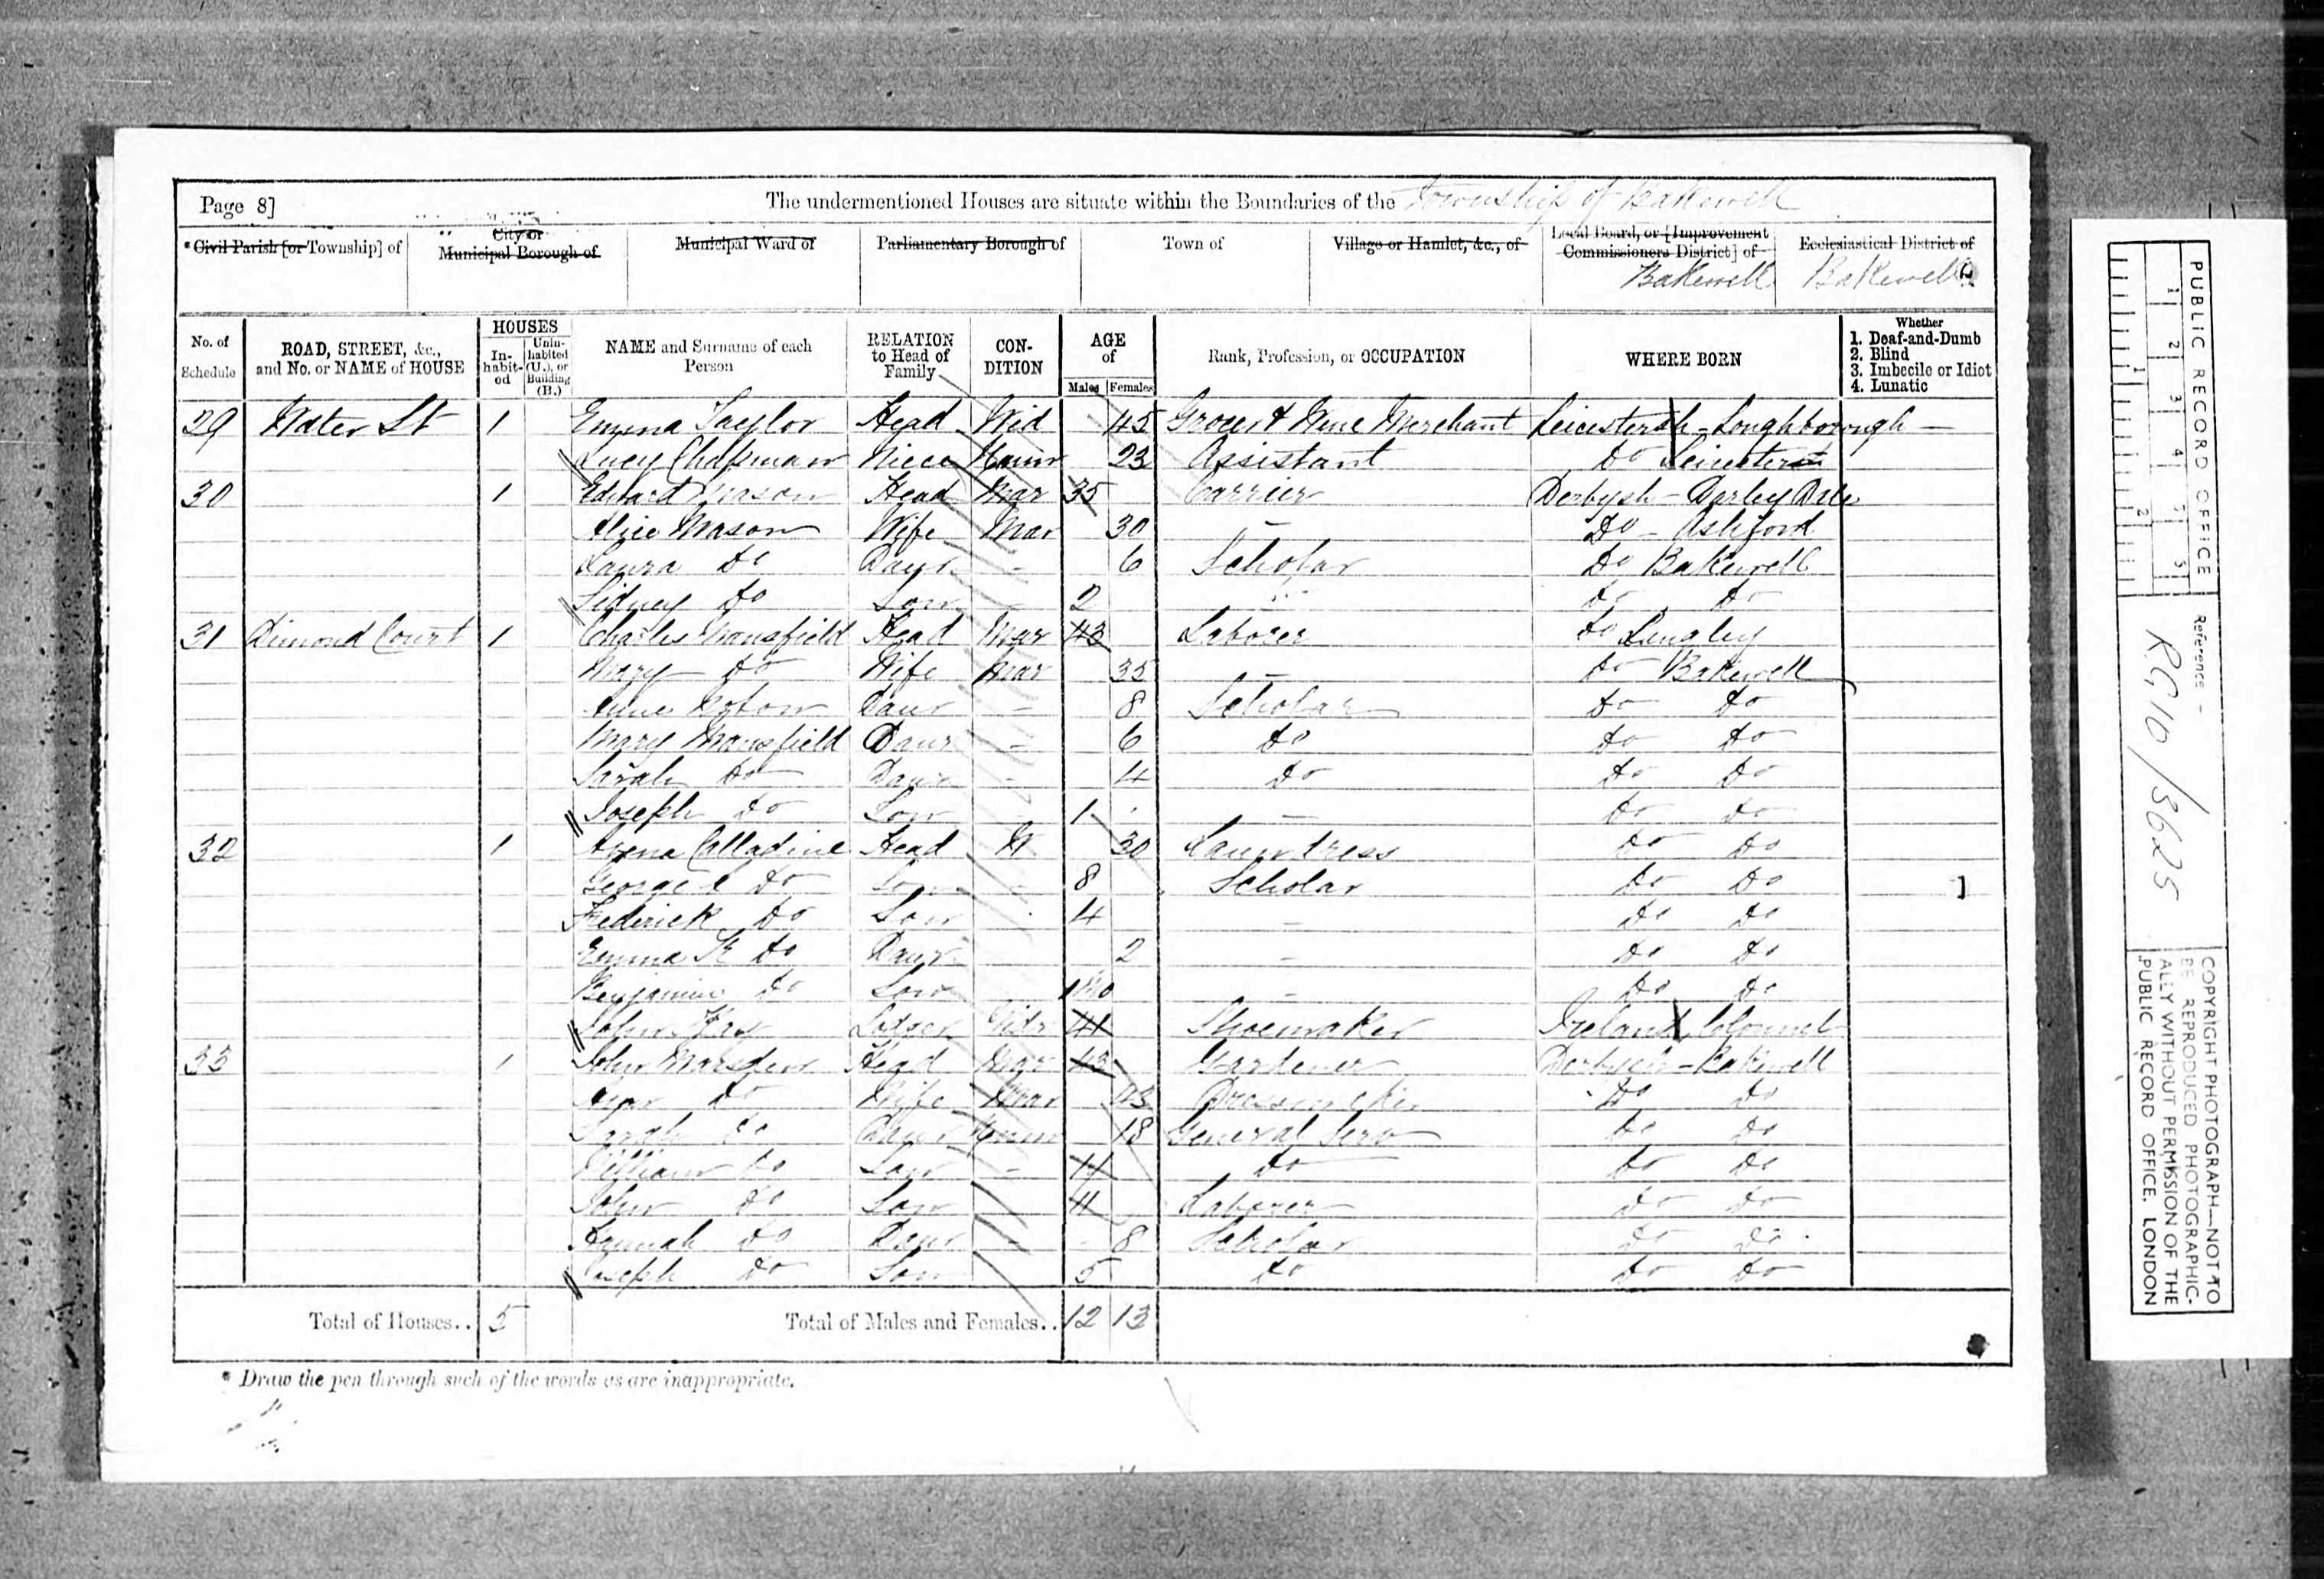 Page 8]
The undermentioned Houses are situate within the Boundaries of the Township of Bakewell
* Civil Parish [or Township] of
City or Municipal Borough of
Municipal Ward of
Parliamentary Borough of
Town of
Village or Hamlet, &c., of
Local Board, or [Improvement Commissioners District] of
Bakewell
Ecclesiastical District of
Bakewell
No. of Schedule
ROAD, STREET, &c., and No. or NAME of HOUSE
HOUSES
In-habit-ed
Unin-habited (U.), or Building (B.)
NAME and Surname of each Person
RELATION to Head of Family
CON-DITION
AGE of
Males Females
Rank, Profession, or OCCUPATION
WHERE BORN
Whether
1. Deaf-and-Dumb
2. Blind
3. Imbecile or Idiot
4. Lunatic
29 Water St 1 Emma Taylor Head Wid 45 Grocer & Wine Merchant Leicestersh - Loughborough
Lucy Chapman Niece Unm 23 Assistant Do Leicester
30 1 Edward Mason Head Mar 35 Carrier Derbysh - Darley Dale
Alice Mason Wife Mar 30 - Do - Ashford
Laura Do Daur - 6 Scholar Do Bakewell
Sidney Do Son - 2 Do Do
31 Dimond Court 1 Charles Mansfield Head Mar 43 Laborer Do
Mary Do Wife Mar 35 - Do Bakewell
Daur - 8 Scholar Do Do
Mary Mansfield Daur - 6 Do Do Do
Sarah Do Daur - 4 Do Do Do
Joseph Do Son 1 - Do Do
32 1 Calladine Head 30 Laundress Do Do
George Do Son - 8 Scholar Do Do
Frederick Do Son 4 - Do Do
Emma Do Daur 2 - Do Do
Benjamin Do Son 1 Mo - Do Do
John Lodger Widr 41 Shoemaker Ireland
33 1 John Marsden Head Mar 43 Gardener Derbysh - Bakewell
Ann Do Wife Mar 43 Dressmaker Do Do
Sarah Do Daur Unm 18 General Serv Do Do
William Do Son - Do Do Do
John Do Son 11 Laborer Do Do
Hannah Do Daur - 8 Scholar Do Do
Joseph Do Son 5 Do Do Do
Total of Houses.. 5
Total of Males and Females.. 12 13
* Draw the pen through such of the words as are inappropriate.
PUBLIC RECORD OFFICE
1 2 3 4 5
1 2
Reference -
RG 10 / 3625
COPYRIGHT PHOTOGRAPH—NOT TO
BE REPRODUCED PHOTOGRAPHIC-
ALLY WITHOUT PERMISSION OF THE
PUBLIC RECORD OFFICE, LONDON